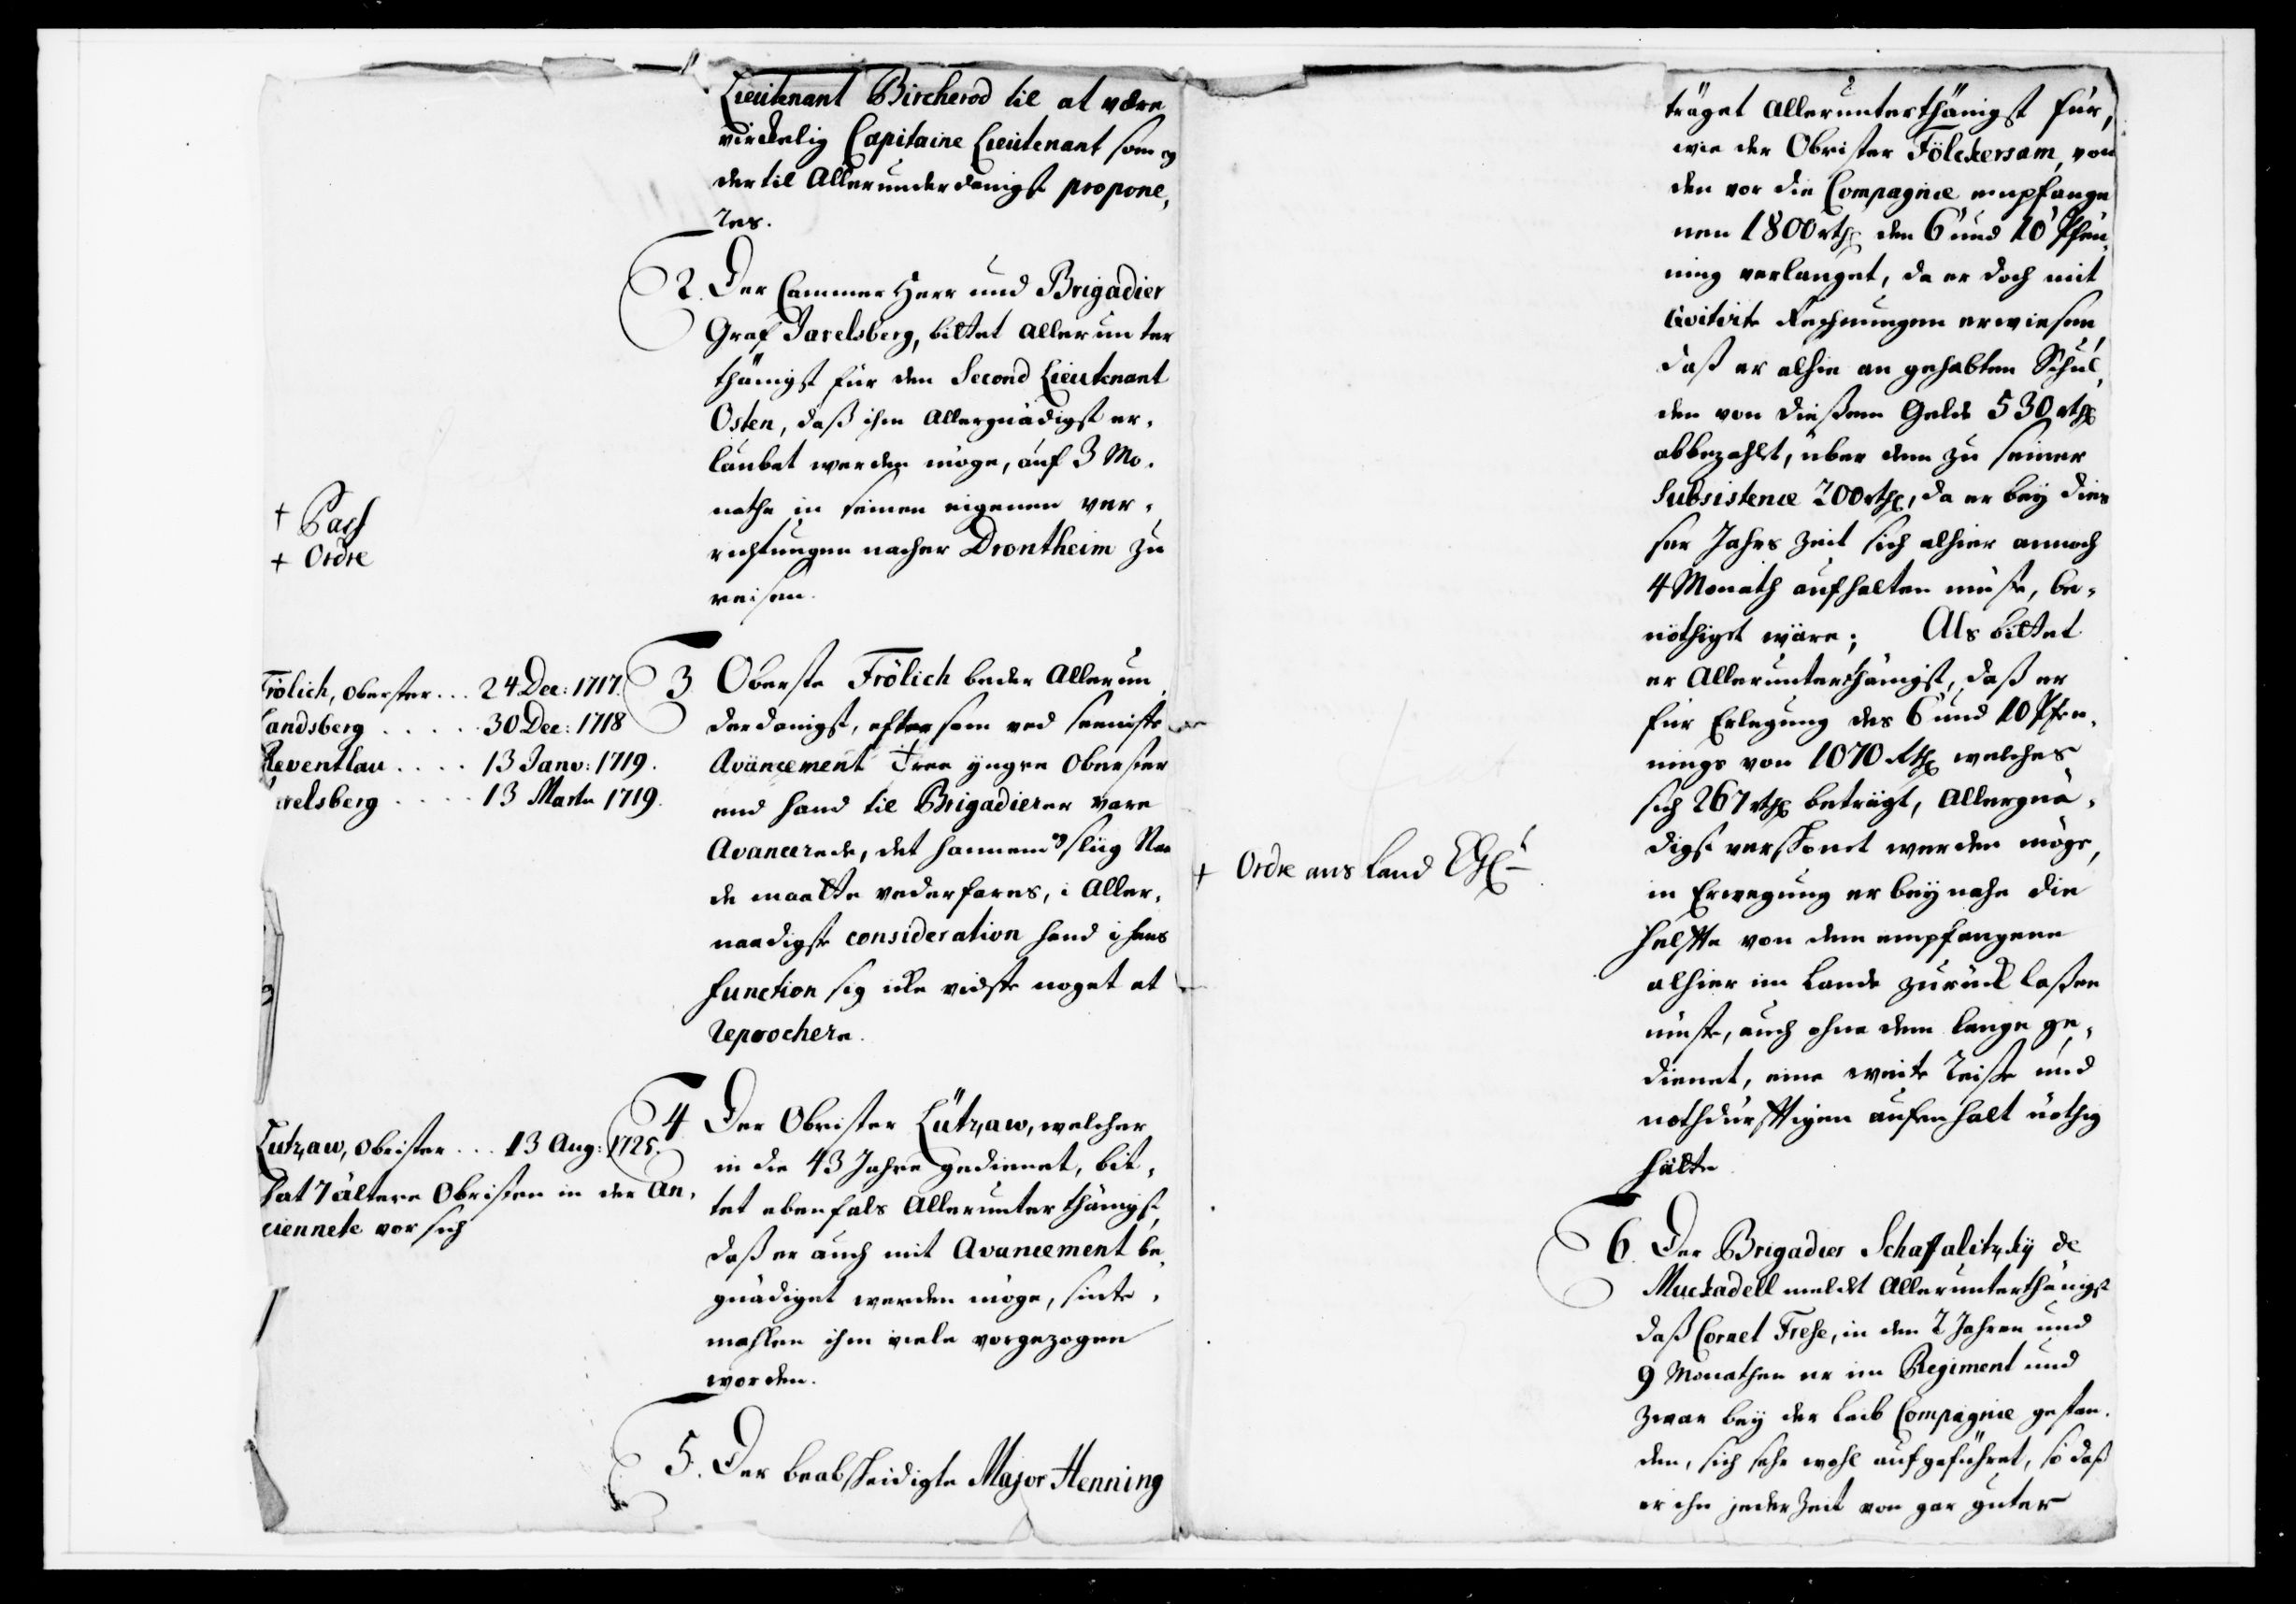 Lieutenant Bircherod til at være
virckelig Capitaine Lieutenant som og
dertil Allerunderdanigst propone,
res.
2. Der Cammer Herr und Brigadier
Graf Jarelsberg, bittet allerunter
thänigst für den Second Lieutenant
Osten, daß ihm Allergnädigst er,
laubet werden möge, auf 3 Mo,
nathe in seinen eigenen ver,
richtungen nacher Drontheim zu
reisen.
† Pass
+ Ordre
3. Oberste Frölich beder Allerun
derdanigst, eftersom ved seeniste
Avancement † tree yngre Oberster
end hand til Brigadierer vare
Avancerede, det hannem og sliig Naa
de maatte vederfares, i Aller,
naadigste consideration hand i hans
function sig icke vidste noget at
reprochere.
Frölich, Oberster ... 24 Dec: 1717.
Landsberg ..... 30 Dec: 1718
Reventlau .... 13 Janv: 1719.
Jarelsberg .... 13 Martz 1719.
4 Der Obrister Lützaw, welcher
in die 43 Jahre gedienet, bit,
tet ebenfals Allerunterthänigst,
daß er auch mit Avancement be,
gnädiget werden möge, sinte,
mahlen ihm viele vorgezogen
worden.
Lützaw, Obrister ... 13 Aug: 1725.
hat 7 ältere Obristen in der An,
ciennete vor sich
5. Der beabscheidigte Major Henning
träget Allerunterthänigst für,
wie der Obrister Fölckersam, von
den vor die Compagnie empfange
nen 1800 rthl den 6 und 10 Pfen,
ning verlanget, da er doch mit
qvitirte Rechnungen erwiesen,
daß er alhie an gehabten Schul,
den von dießem Gelde 530 rthl
abbezahlt, über dem zu seiner
Subsistence 200 rthl, da er bey dies
ser Jahrs Zeit sich alhier annoch
4 Monath aufhalten müste, be,
nöthiget wäre; Als bittet
er Allerunterthänigst, daß er
für Erlegung des 6 und 10 Pfen,
nings von 1070 Rthl welches
sich 267 rthl beträgt, Allergnä,
digst verschonet werden möge,
in Erwegung er bey nahe die
helffte von dem empfangene
alhier im Lande zurück laßen
müste, auch ohne dem lange ge,
dienet, eine weite Reiße und
nothdürfftigen aufenhalt nöthig
hätte
+ Ordre ans Land
6. Der Brigadier Schaffalitzky de
Muckadell meldet Allerunterthänigst
daß Cornet Frese, in den 2 Jahren und
9 Monathen er im Regiment und
zwar bey der Leib Compagnie gestan,
den, sich sehr wohl aufgeführet, so daß
er ihn jeder Zeit von gar guter